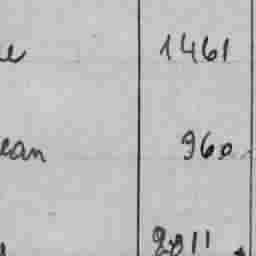 1461
ean 960
2811